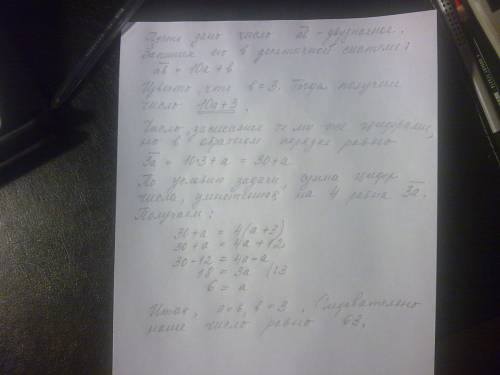 Пусть дано число ab - двузначное.
Запишем его в десятичной системе:
ab = 10a + b
Известно, что b = 3. Тогда получаем
число 10a+3.
Число, записанное теми же цифрами,
но в обратном порядке равно
3a = 10·3 + a = 30+a
По условию задачи, сумма цифр
числа, умноженная на 4 равна 3a.
Получаем:
30+a = 4(a+3)
30+a = 4a+12
30-12 = 4a-a
18 = 3a |:3
6 = a
Итак, a=6, b=3. Следовательно
наше число равно 63.